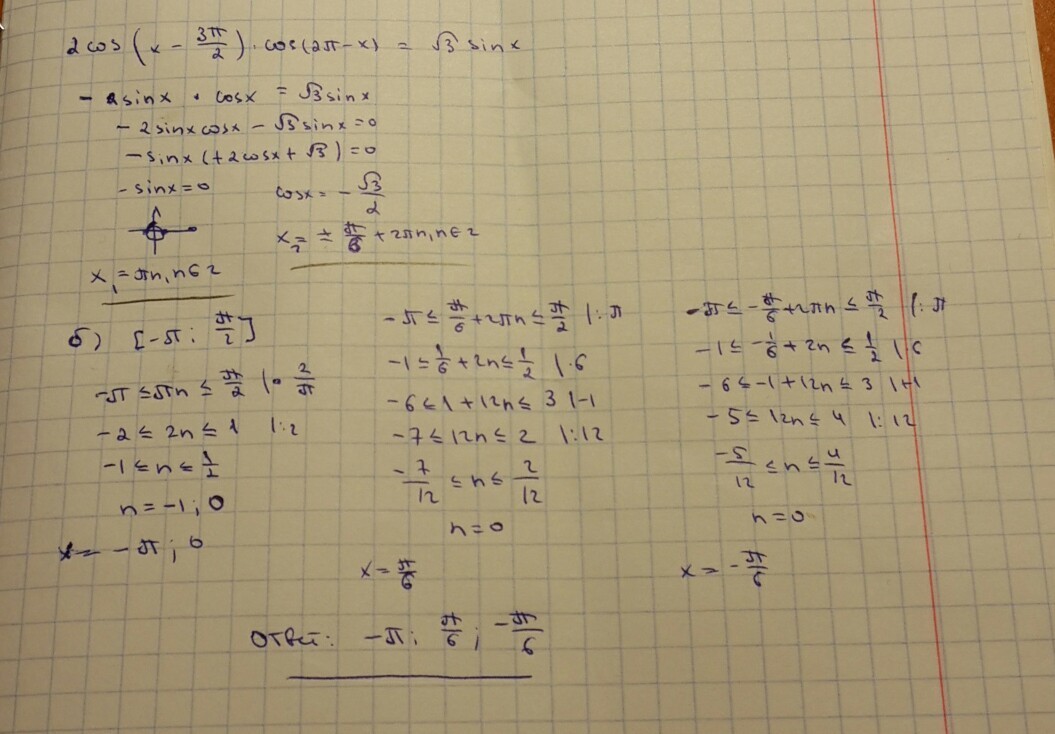 2cos(x - 3π/2) · cos(2π-x) = √3 sinx
- 2sinx · cosx = √3sinx
- 2sinxcosx - √3sinx=0
-sinx(+2cosx+√3)=0
-sinx=0
cosx= - √3/2
x₂= ± π/6 +2πn, n∈z
x₁=πn, n∈z
б) [-π; π/2]
-π ≤ πn ≤ π/2 | · 2/π
-2 ≤ 2n ≤ 1 |:2
-1 ≤ n ≤ 1/2
n=-1; 0
x= -π; 0
-π ≤ π/6 +2πn ≤ π/2 |:π
-1 ≤ 1/6 +2n ≤ 1/2 |·6
-6 ≤ 1+12n ≤ 3 |-1
-7 ≤ 12n ≤ 2 |:12
-7/12 ≤ n ≤ 2/12
n=0
x= π/6
-π ≤ -π/6 +2πn ≤ π/2 |:π
-1 ≤ -1/6 +2n ≤ 1/2 |·6
-6 ≤ -1+12n ≤ 3 |+1
-5 ≤ 12n ≤ 4 |:12
-5/12 ≤ n ≤ 4/12
n=0
x= -π/6
Ответ: -π; π/6; -π/6